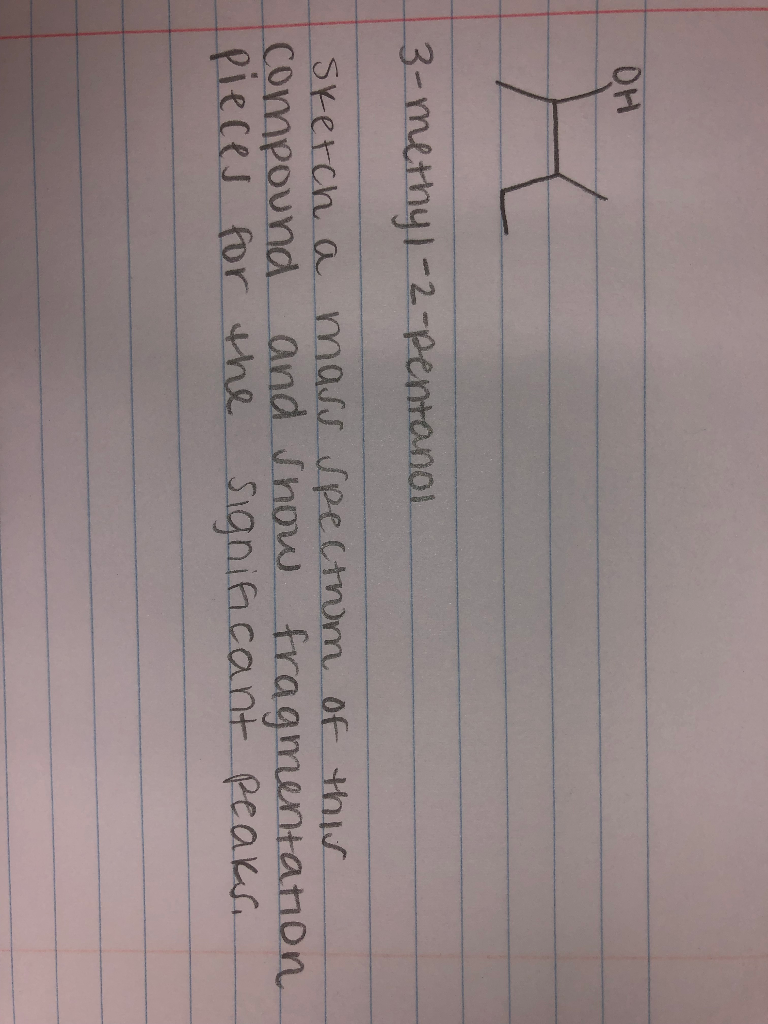 OH
3-methyl-2-pentanol
Sketch a mass spectrum of this
compound and show fragmentation
pieces for the significant peaks.